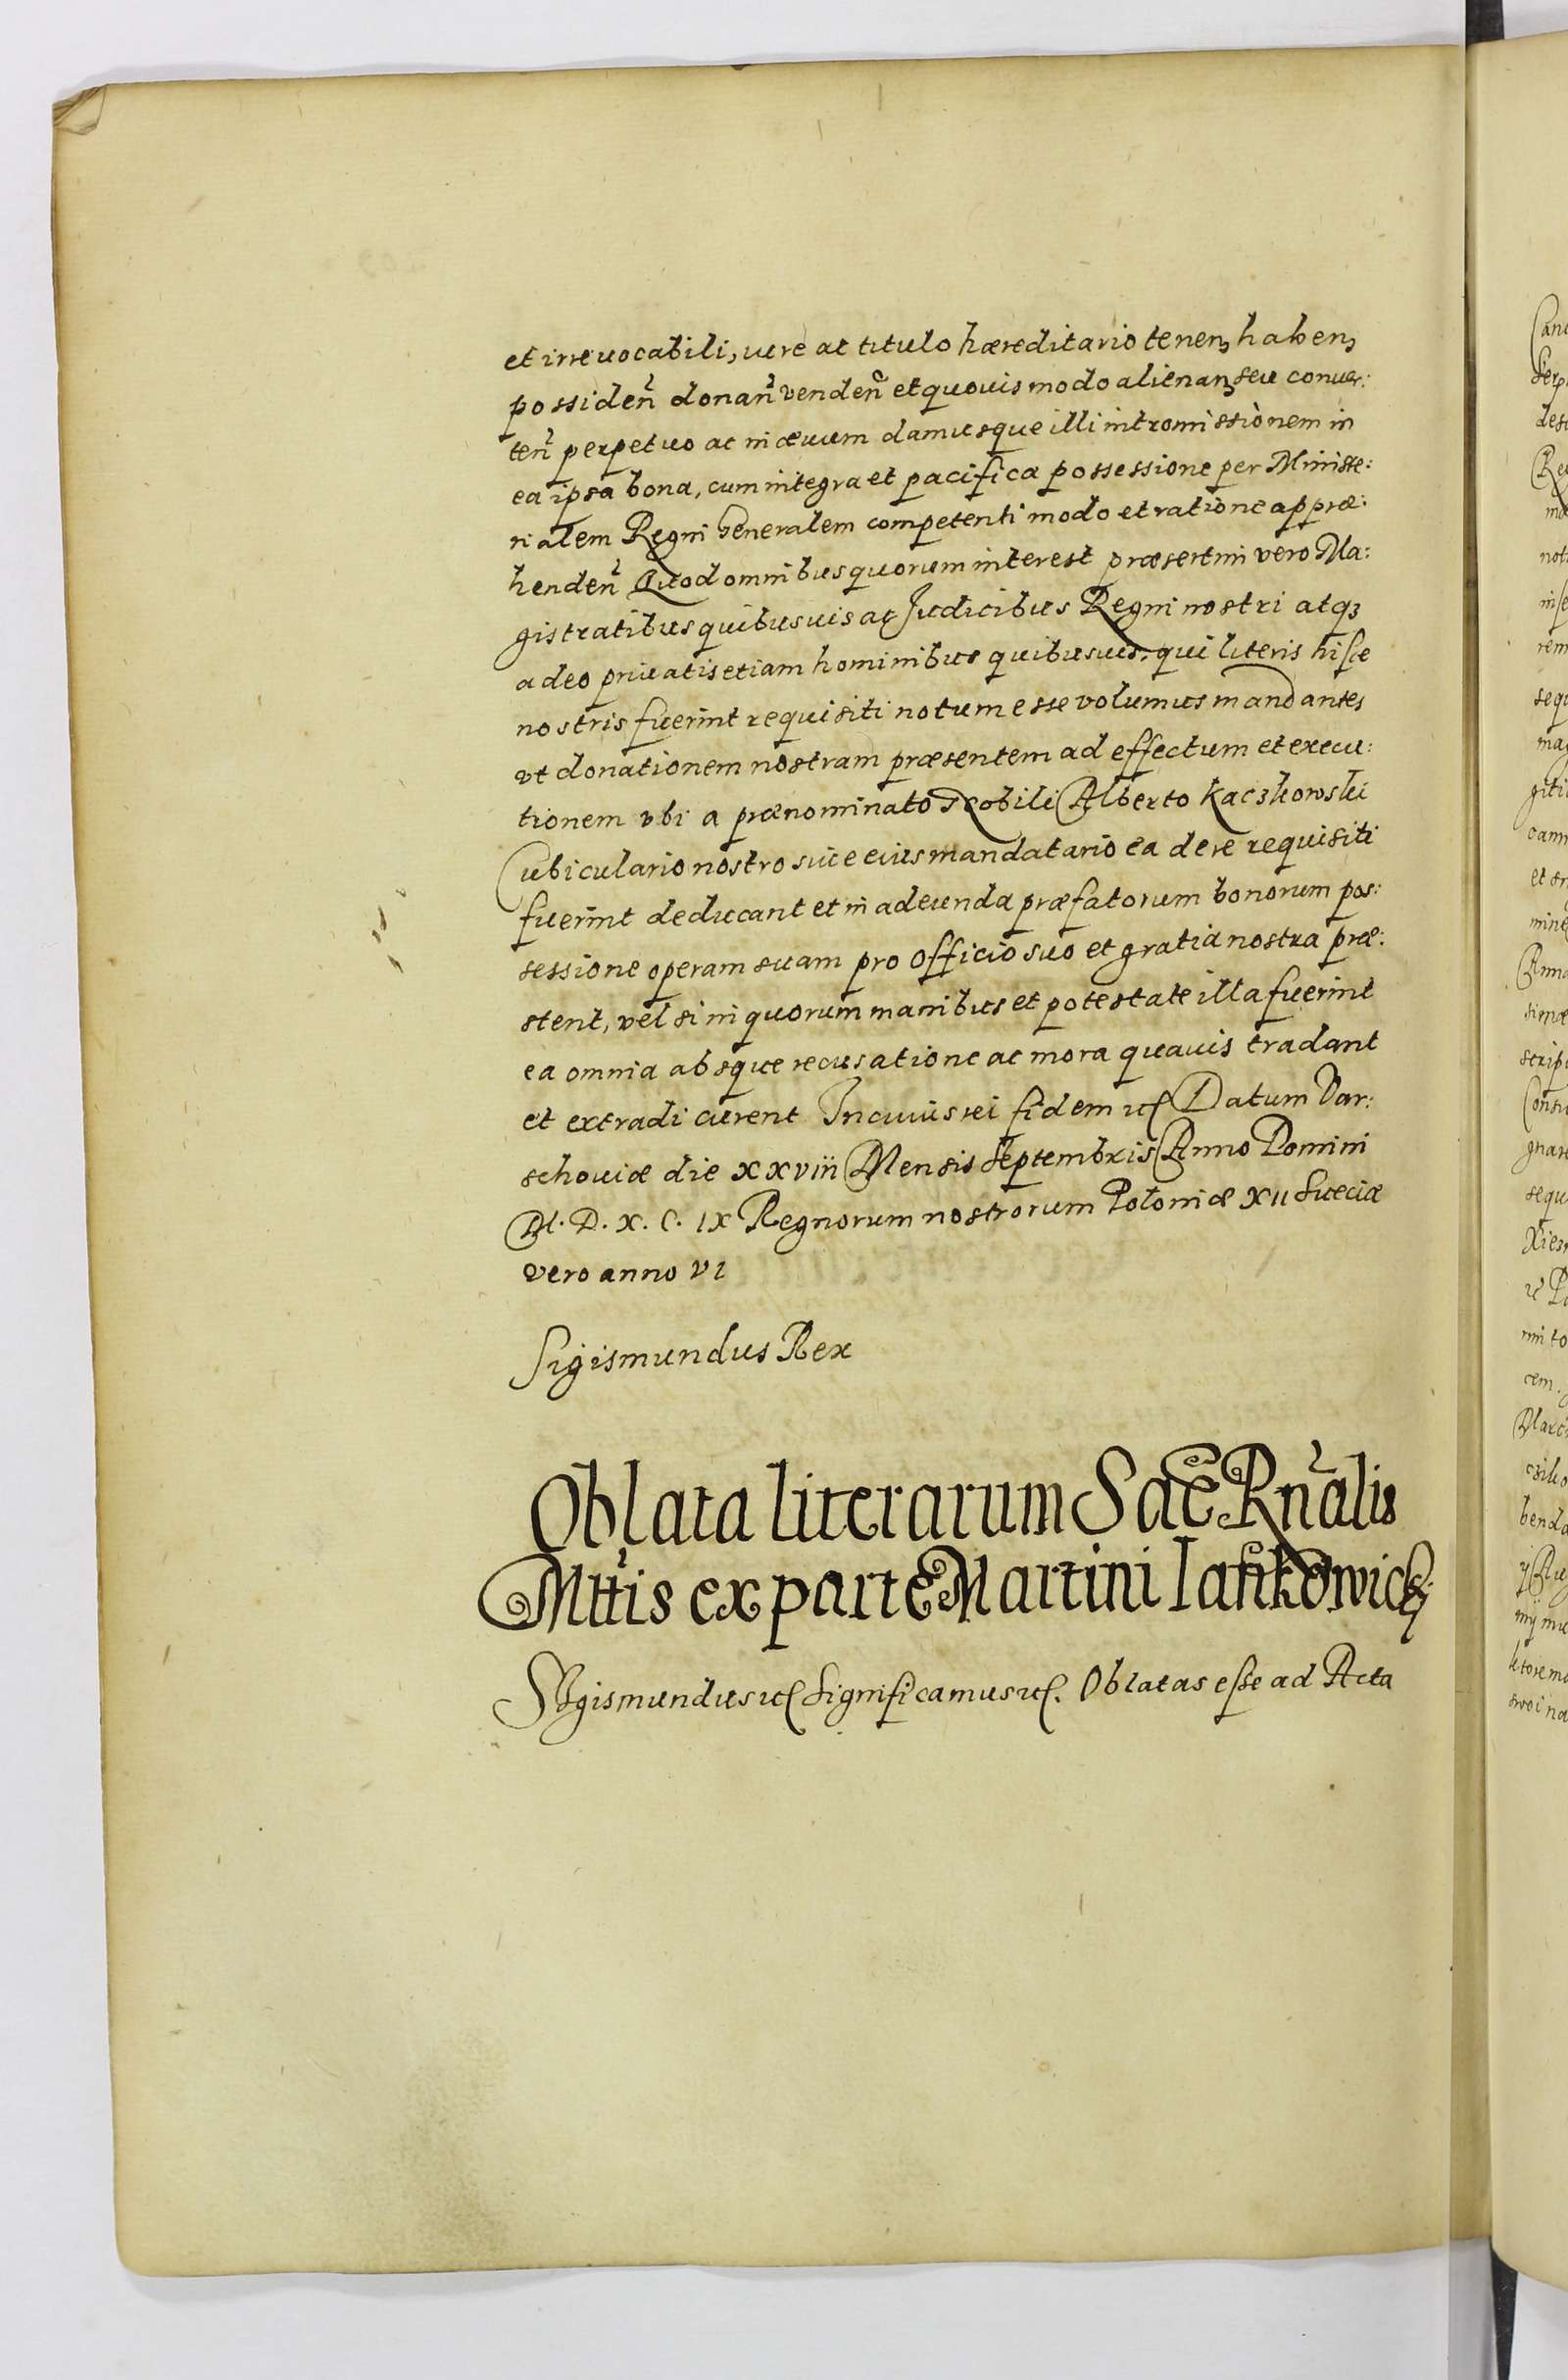 et irreuocabili, iure ac titulo hæreditario tenen, haben,
possideñ donañ vendeñ et quouis modo alienan, seu conuer:
teñ perpetuo ac in æuum damusque illi intromissionem in
ea ipsa bona, cum integra et pacifica possessione per Ministe:
rialem Regni Generalem competenti modo et ratione appræ:
hendeñ Quod omnibus quorum interest præsertim vero Ma:
gistratibus quibusuis ac Judicibus Regni nostri atqꝫ
adeo priuatis etiam hominibus quibusuis, qui literis hisce
nostris fuerint requisiti notum esse volumus mandantes
vt donationem nostram præsentem ad effectum et execu:
tionem vbi a prænominato Nobili Alberto Kaczkowski
Cubiculario nostro siue eius mandatario ea de re requisiti
fuerint deducant et in adeunda præfatorum bonorum pos:
sessione operam suam pro officio suo et gratia nostra præ:
stent, vel si in quorum manibus et potestate illa fuerint
ea omnia absque recusatione ac mora quauis tradant
et extradi curent In cuius rei fidem etc Datum Var:
schouiæ die xxviii Mensis Septembris Anno Domini
M. D. X. C. IX Regnorum nostrorum Poloniæ XII Sueciæ
vero anno VI
Sigismundus Rex
Oblata literarum Sacæ Rñalis
Mttis ex parte Martini Iankowicz
Sigismundus etc Significamus etc. Oblatas esse ad Acta